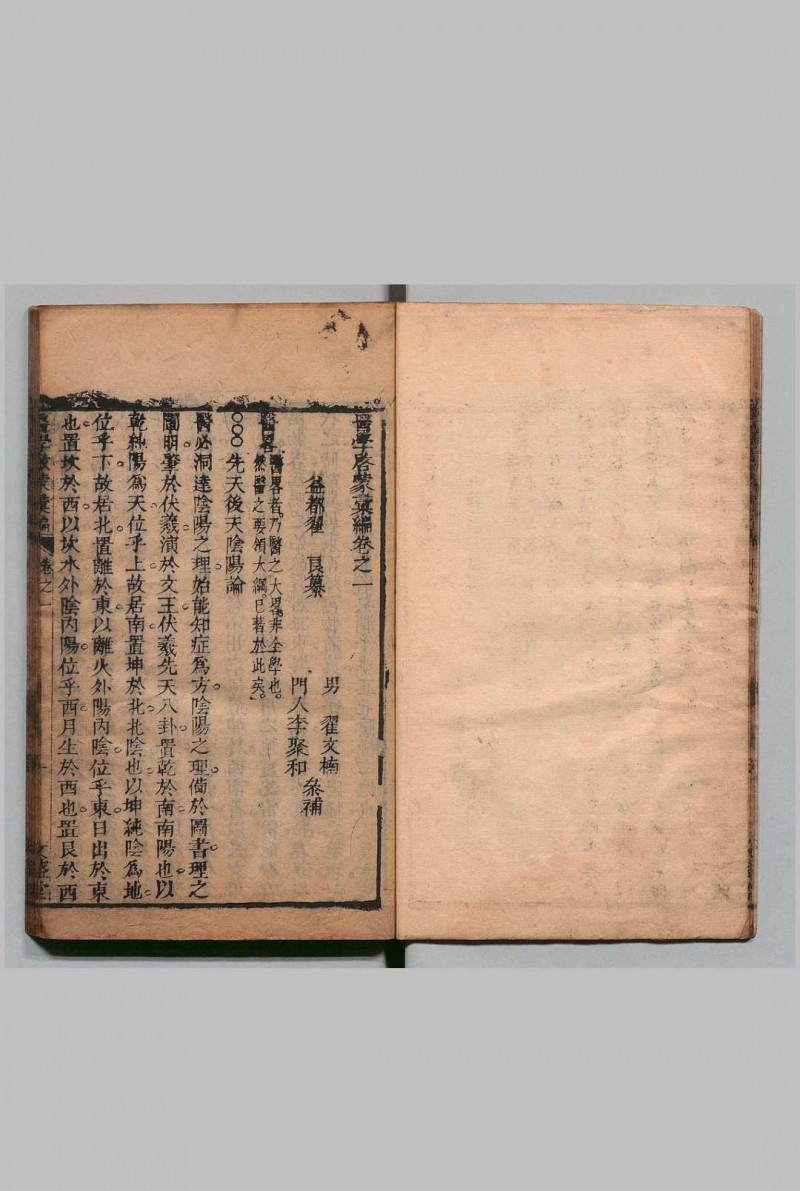 醫學啓蒙彙編卷之一
益都翟　良纂
男　翟文楠
門人李聚和
叅補
醫畧
醫畧者。乃醫之大畧。非全學也。
然醫之要領大綱。已着於此矣。
○○○先天後天陰陽論
醫必洞達陰陽之理。始能知症爲方。陰陽之理。俻於圖書。理之
圖明。肇於伏羲。演於文王。伏羲先天八卦。置乾於南。南陽也。以
乾純陽爲天。位乎上。故居南。置坤於北。北陰也。以坤純陰爲地。
位乎下。故居北。置離於東。以離火外陽内陰。位乎東。日出於東
也。置坎於西。以坎水外陰内陽。位乎西。月生於西也。置艮於西
醫學啓蒙彙編
卷之一
一
文盛堂